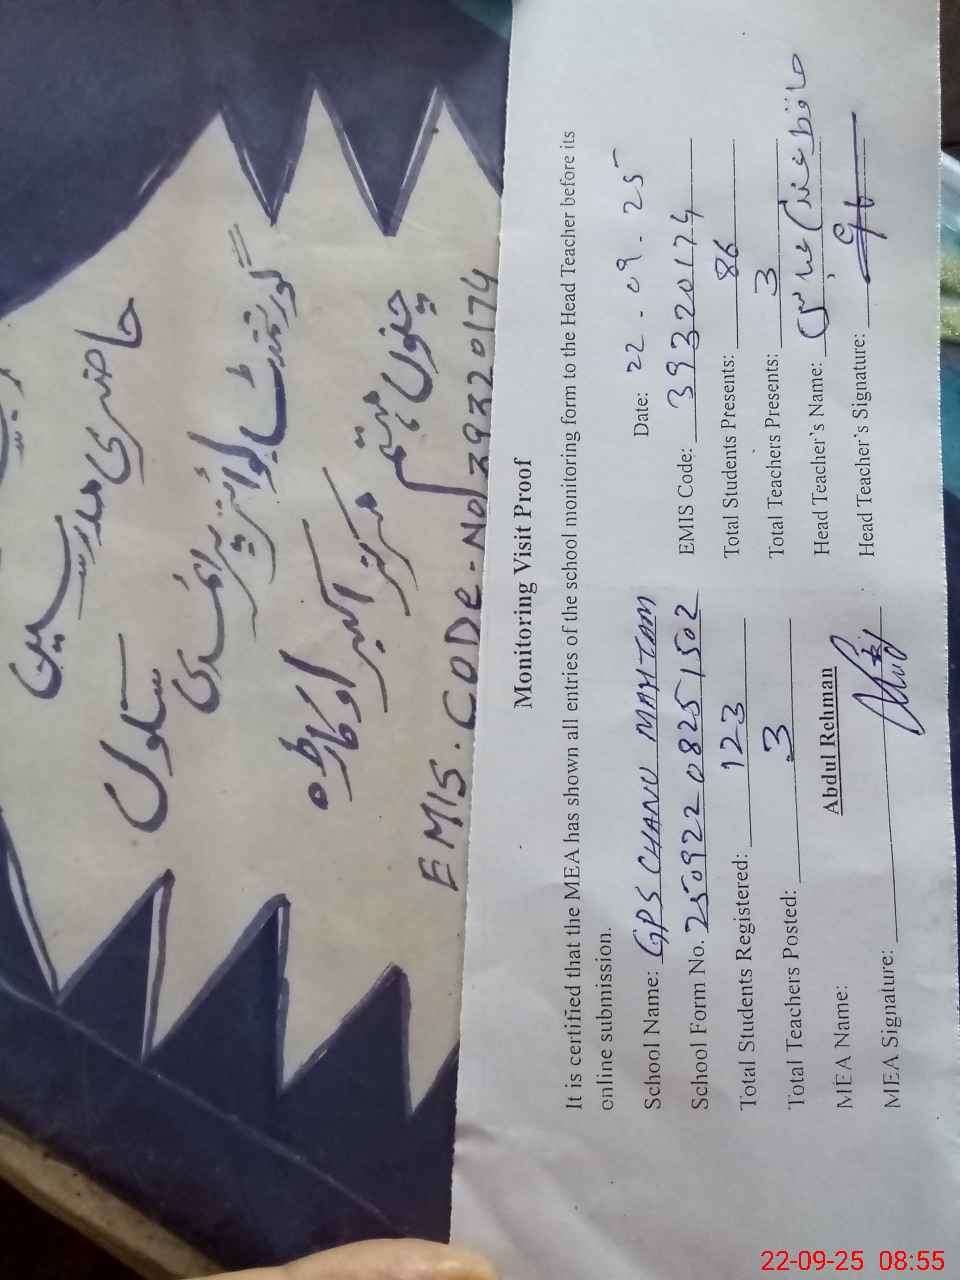 حاضری مدرسین
گورنمنٹ بوائز پرائمری
سکول
چنوں مہتم
مرکز اکبر اوکاڑہ
EMIS. CODE-No 39320174
Monitoring Visit Proof
It is certified that the MEA has shown all entries of the school monitoring form to the Head Teacher before its
online submission.
Date: 22-09-25
School Name: GPS CHANU MAHTAM
EMIS Code: 39320174
School Form No. 250922 08251502
Total Students Presents: 86
Total Students Registered: 123
Total Teachers Presents: 3
Total Teachers Posted: 3
Head Teacher's Name: حافظ عباس
MEA Name: Abdul Rehman
Head Teacher's Signature:
MEA Signature:
22-09-25 08:55